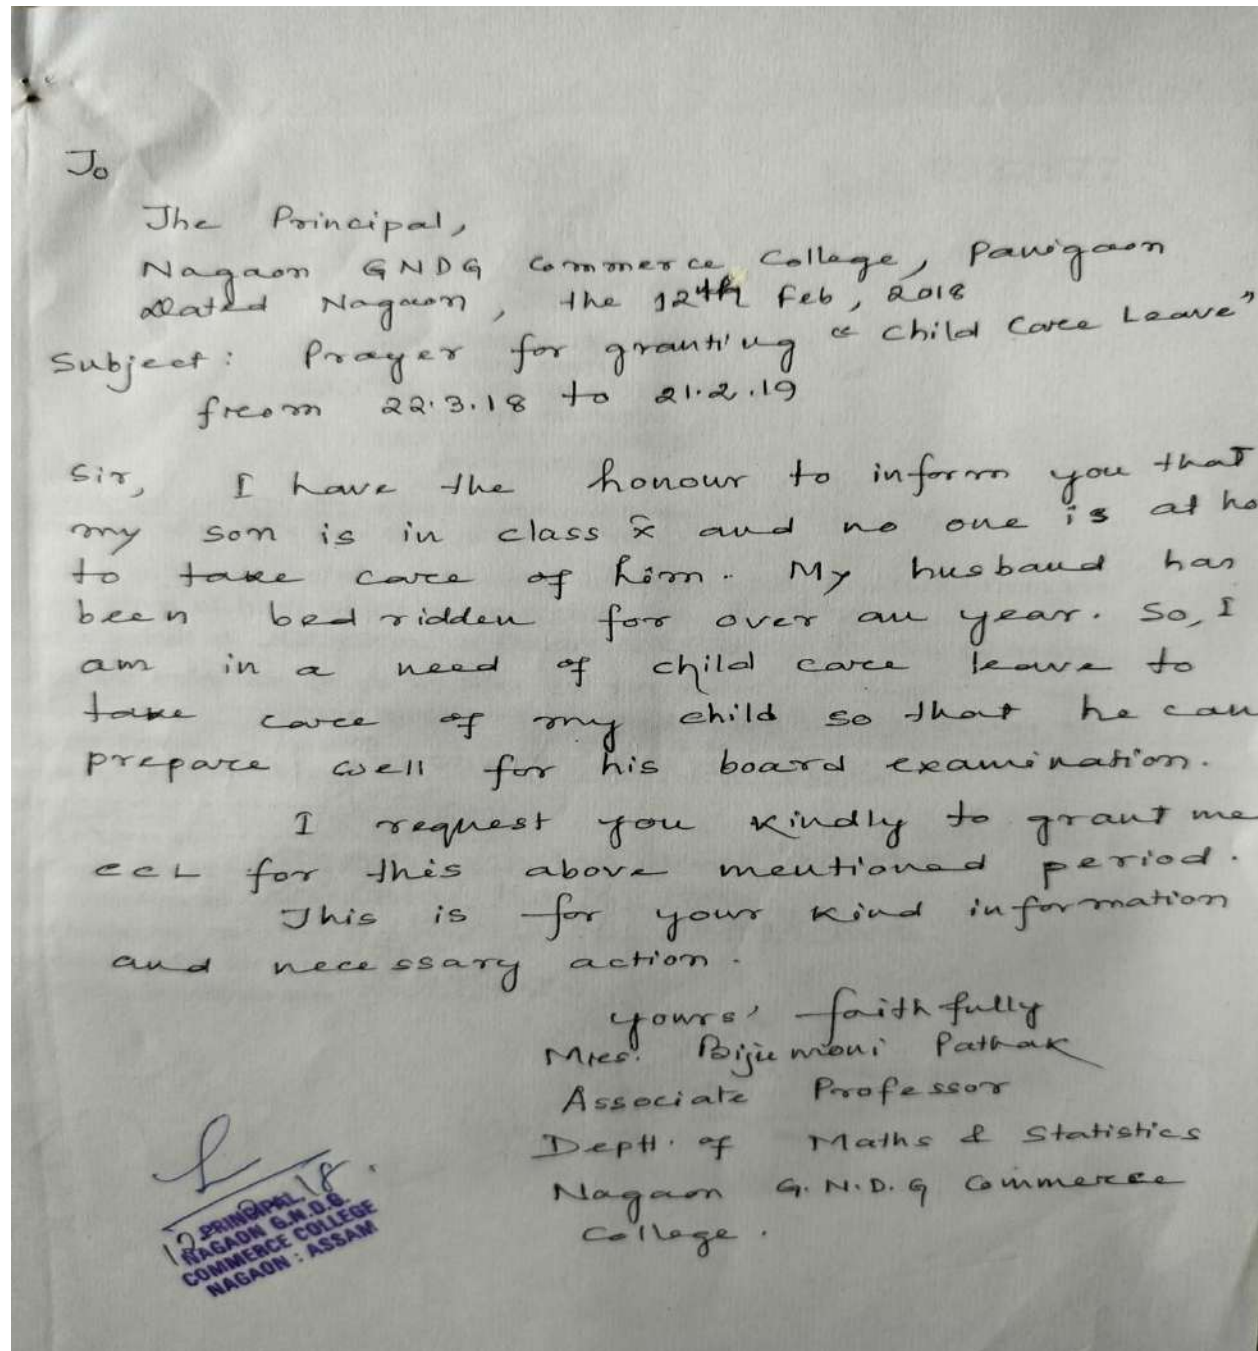 To
The Principal,
Nagaon GNDG Commerce College, Panigaon
Dated Nagaon, the 12th Feb, 2018
Subject: Prayer for granting "Child Care Leave"
from 22.3.18 to 21.2.19
Sir, I have the honour to inform you that
my son is in class X and no one is at ho
to take care of him. My husband has
been bed ridden for over an year. So, I
am in a need of child care leave to
take care of my child so that he can
prepare well for his board examination.
I request you kindly to grant me
CCL for this above mentioned period.
This is for your kind information
and necessary action.
yours' faithfully
Mrs. Bijumoni Pathak
Associate Professor
Deptt. of Maths & Statistics
Nagaon G.N.D.G Commerce
College.
PRINCIPAL
NAGAON G.N.D.G.
COMMERCE COLLEGE
NAGAON : ASSAM